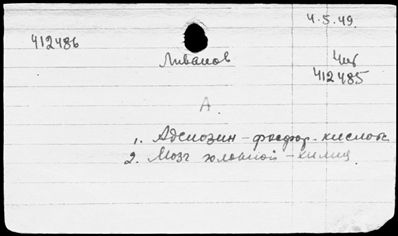 4.5.49.
412486
Ливанов
Чит
412485
А.
1. Аденозин-фосфор. кислота
2. Мозг головной-химия